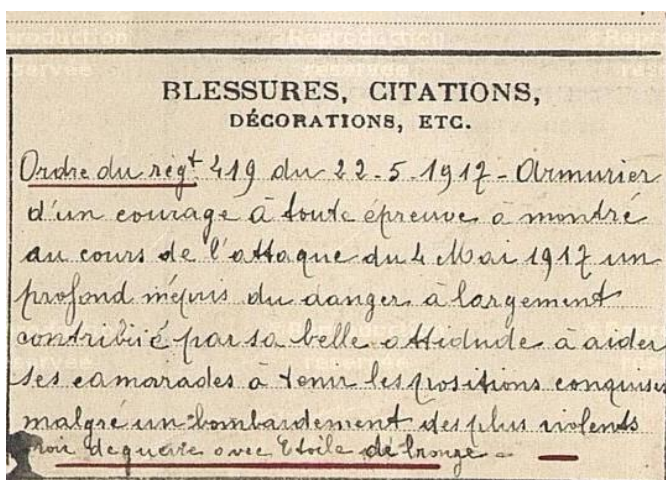 BLESSURES, CITATIONS,
DÉCORATIONS, ETC.
Ordre du régt 419 du 22-5-1917 - Armurier
d'un courage à toute épreuve a montré
au cours de l'attaque du 4 Mai 1917 un
profond mépris du danger a largement
contribué par sa belle attidude à aider
ses camarades à tenir les positions conquises
malgré un bombardement des plus violents
de guerre avec Etoile de bronze -